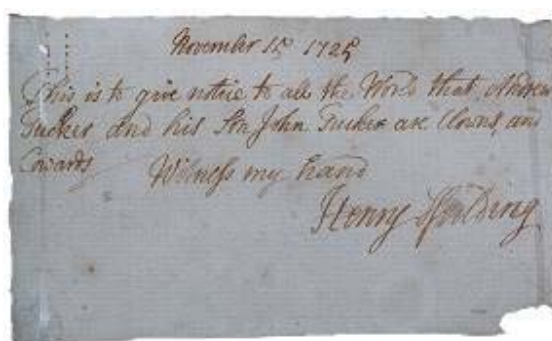 November 15 1725
This is to give notice to all the World that Andrew
Tucker and his Son John Tucker are Clowns, and
Cowards
Witness my hand
Henry Ffeilding